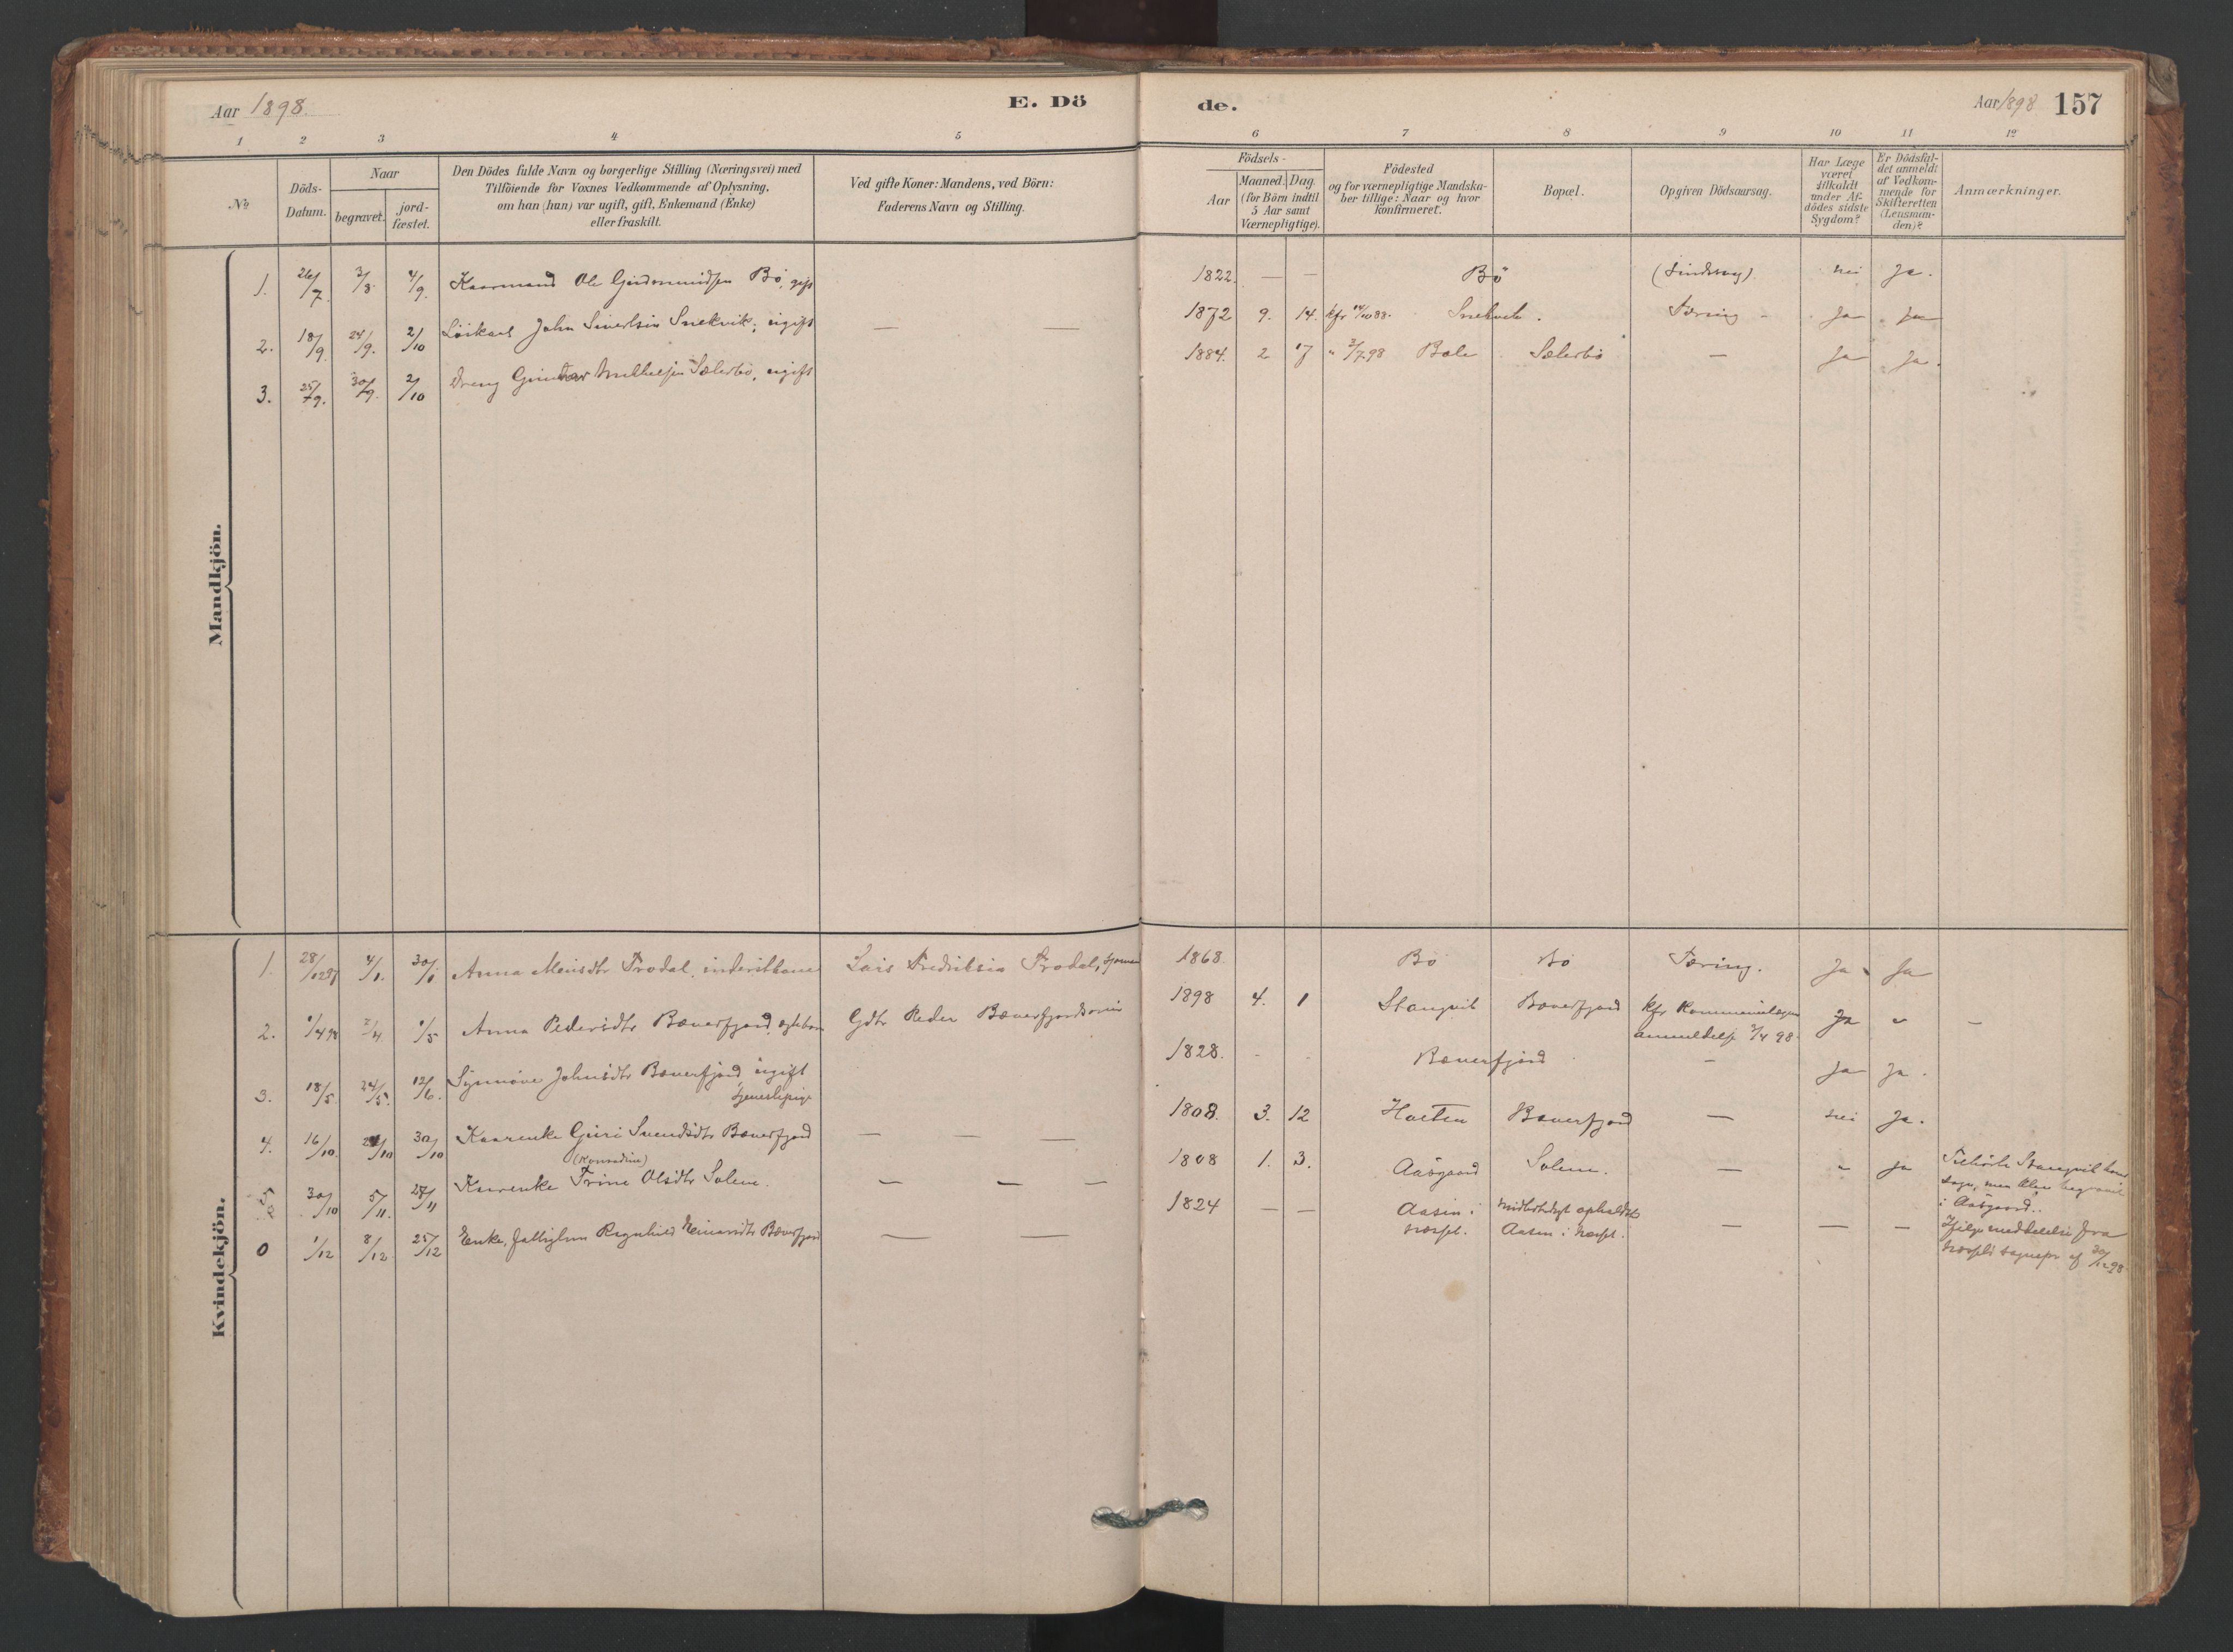 Aar 1898. E. Dö de. Aar 1898 157
1 2 3 4 5 6 7 8 9 10 11 12
№
Döds-
Datum.
Naar
begravet.
jord-
fæstet.
Den Dödes fulde Navn og borgerlige Stilling (Næringsvei) med
Tilföiende for Voxnes Vedkommende af Oplysning,
om han (hun) var ugift, gift, Enkemand (Enke)
eller fraskilt.
Ved gifte Koner: Mandens, ved Börn:
Faderens Navn og Stilling.
Födsels-
Aar
Maaned. Dag.
(for Börn indtil
5 Aar samt
Værnepligtige).
Födested
og for værnepligtige Mandska-
ber tillige: Naar og hvor
konfirmeret.
Bopæl.
Opgiven Dödsaarsag.
Har Læge
været
tilkaldt
under Af-
dödes sidste
Sygdom?
Er Dödsfal-
det anmeldt
af Vedkom-
mende for
Skifteretten
(Lensman-
den)?
Anmærkninger.
Mandkjön.
1. 26/7. 3/8. 4/9. Kaarmand Ole Gudmundsen Bö, gift 1822. — — Bö nei Ja.
2. 18/9. 24/9. 2/10 John Sivertsen Snekvik, ugift — — 1872 9. 14. kfr 14/10 88. Snekvik. Tæring Ja Ja
3. 25/9. 30/9. 2/10 Dreng Sæterbö, ugift 1884. 2 17 " 3/7 98 Bale Sæterbö — Ja Ja.
Kvindekjön.
1. 28/12 97 4/1. 30/1 Anna Trodal, Lars Fredriksen Trodal, 1868. Bö Bö Tæring. Ja Ja
2. 1/4 98 2/4 1/5 Anna Pedersdtr Bæverfjord, Gdbr Peder Bæverfjord 1898 4. 1 Stangvik Bæverfjord kfr Kommunelægens
anmeldelse 2/4 98. Ja " —
3. 18/5. 24/5. 12/6. Synnöve Johnsdtr Bæverfjord, ugift
tjenestepige 1828. - - Bæverfjord — Ja Ja.
4. 16/10. 24/10 30/10 Kaarenke Guri Svendsdtr Bæverfjord — — — 1808. 3. 12 Halten Bæverfjord — nei Ja.
(Konradine)
5 30/10 5/11. 27/11 Kaarenke Trine Olsdtr Solem. — — — 1808 1. 3. Aasgaard Solem. — " ja Tilhörte Stangvik
sogn, men blev begravet
i Aasgaard..
0 1/12 8/12. 25/12 Enke, Fattiglem Ragnhild Einarsdtr Bæverfjord — — 1824 — — Aasen i
midlertidigt opholdst
Aasen i — — — Ifölge meddelelse fra
sognepr af 30/12 98.